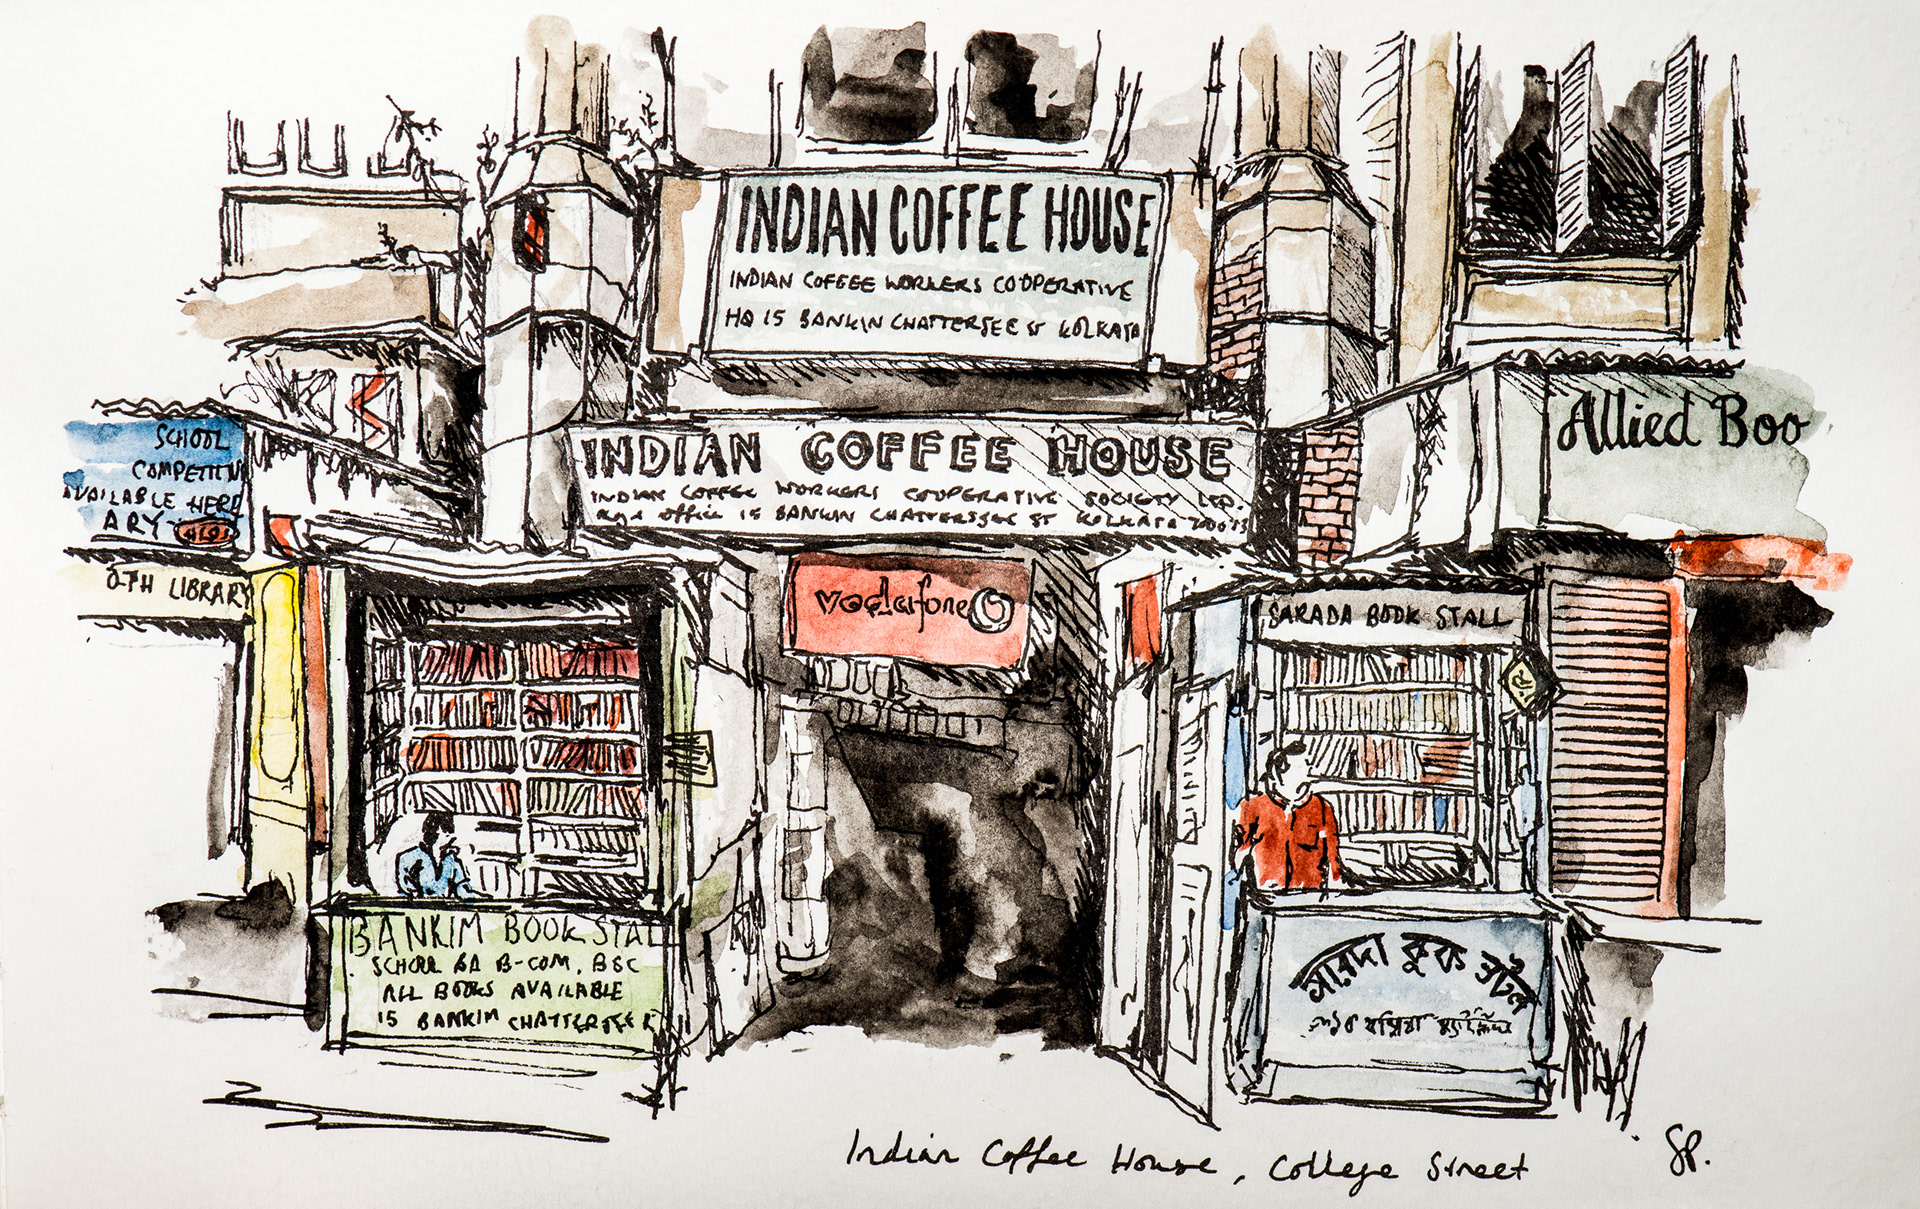 INDIAN COFFEE HOUSE
INDIAN COFFEE WORKERS CO'OPERATIVE
HQ 15 BANKIN CHATTERJEE ST KOLKATA
INDIAN COFFEE HOUSE
INDIAN COFFEE WORKERS CO'OPERATIVE SOCIETY LTD.
office 15 BANKIN CHATTERJEE ST KOLKATA
SCHOOL
COMPETITIV
AVAILABLE HERE
ARY
LIBRARY
Allied Boo
vodafone
SARADA BOOK STALL
BANKIM BOOK STAL
SCHOOL BA B-COM, BSC
ALL BOOKS AVAILABLE
15 BANKIM CHATTERJEE
সারদা বুক স্টল
Indian Coffee House, College Street
SP.